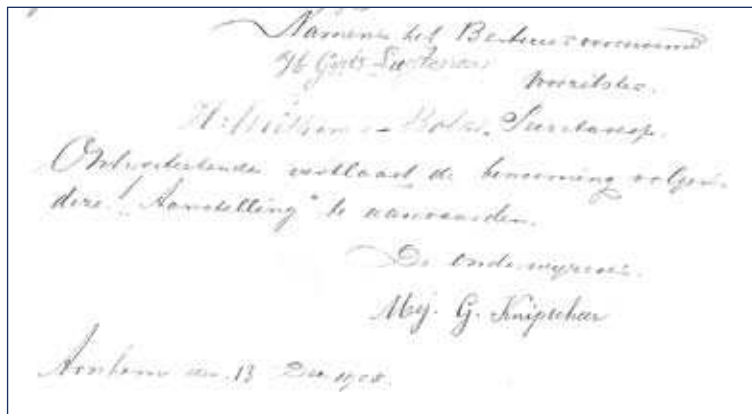 Namens het Bestuur voornoemd
Voorzitster.
Secretaresse.
Ondergeteekende verklaart de benoeming volgens
deze "Aanstelling" te aanvaarden.
De onderwijzeres.
Mej. G. Knipscheer
Arnhem den 13 Dec. 1908.